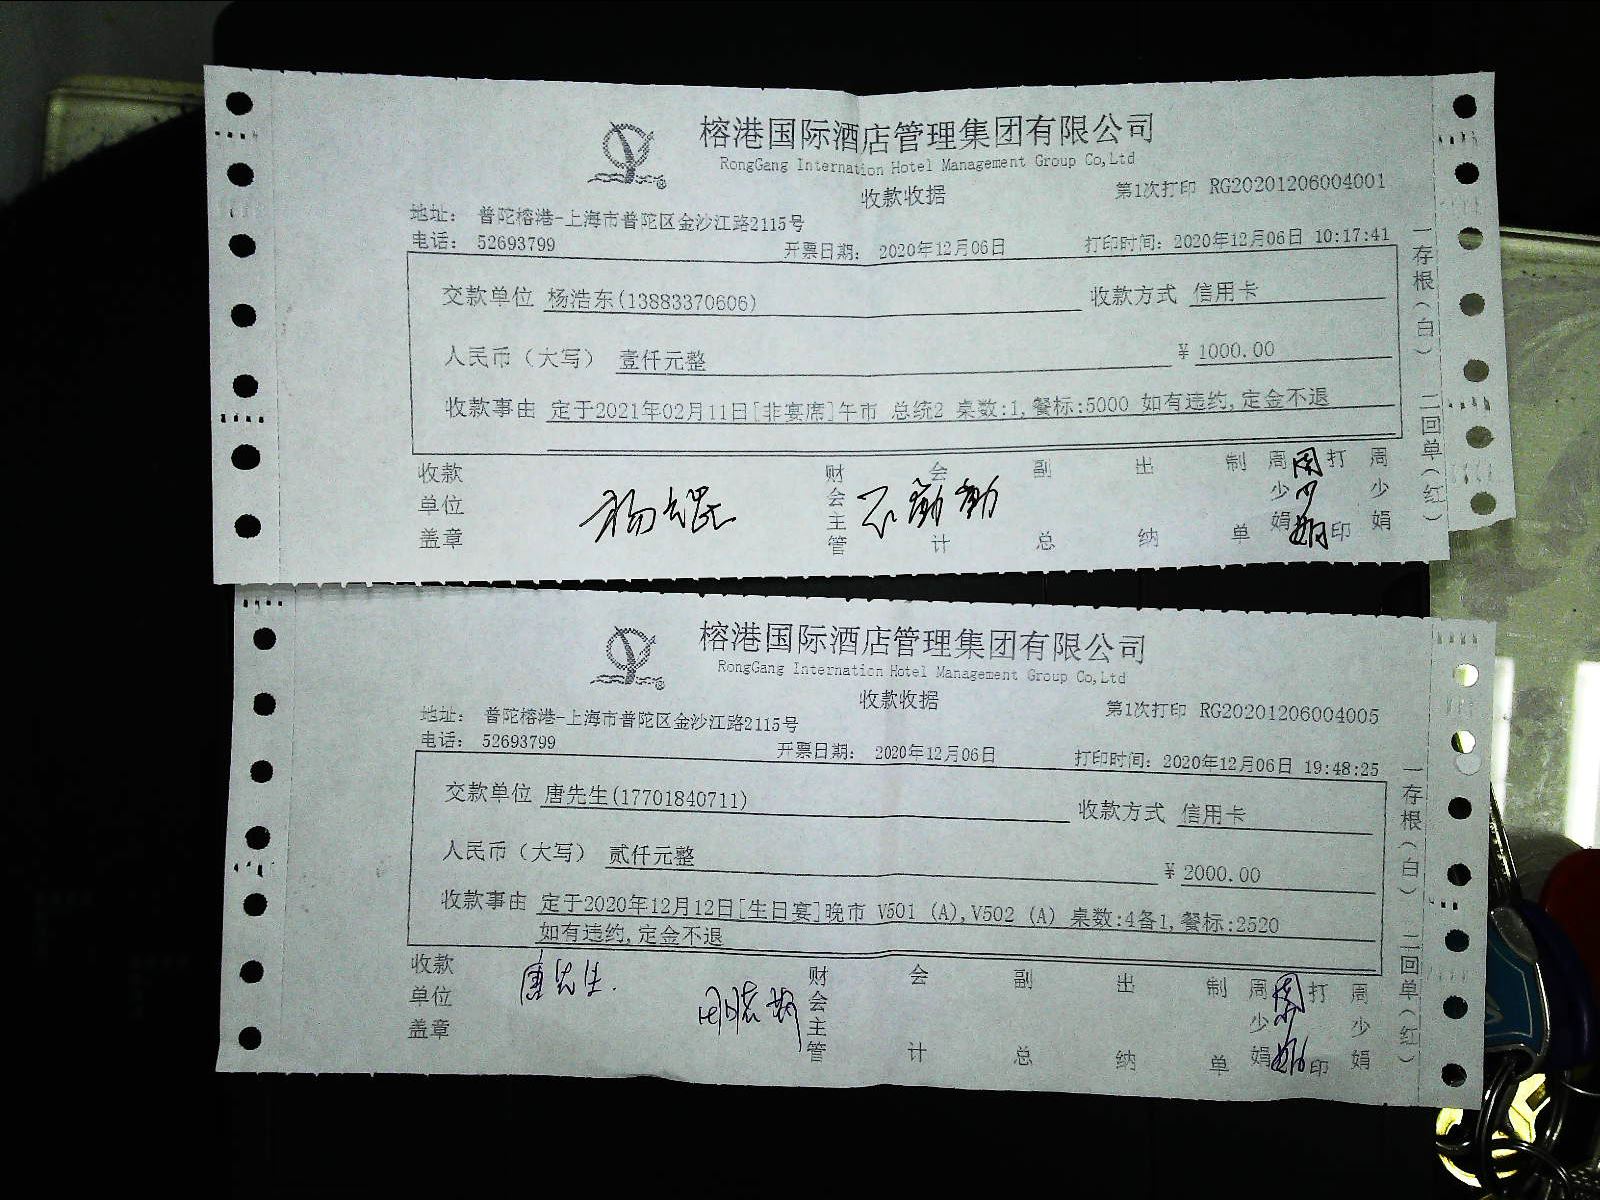 榕港国际酒店管理集团有限公司
RongGang Internation Hotel Management Group Co,Ltd
收款收据
第1次打印 RG20201206004001
地址： 普陀榕港-上海市普陀区金沙江路2115号
电话： 52693799
开票日期： 2020年12月06日
打印时间：2020年12月06日 10:17:41
交款单位 杨浩东(13883370606)
收款方式 信用卡
人民币（大写） 壹仟元整
¥ 1000.00
收款事由 定于2021年02月11日[非宴席]午市 总统2 桌数:1,餐标:5000 如有违约,定金不退
收款单位盖章
财会主管
会计
副总
出纳
制单
周少娟
周少娟
打印
周少娟
一存根（白） 二回单（红）
榕港国际酒店管理集团有限公司
RongGang Internation Hotel Management Group Co,Ltd
收款收据
第1次打印 RG20201206004005
地址： 普陀榕港-上海市普陀区金沙江路2115号
电话： 52693799
开票日期： 2020年12月06日
打印时间：2020年12月06日 19:48:25
交款单位 唐先生(17701840711)
收款方式 信用卡
人民币（大写） 贰仟元整
¥ 2000.00
收款事由 定于2020年12月12日[生日宴]晚市 V501 (A),V502 (A) 桌数:4备1,餐标:2520
如有违约,定金不退
收款单位盖章
唐先生.
财会主管
会计
副总
出纳
制单
周少娟
周少娟
打印
周少娟
一存根（白） 二回单（红）